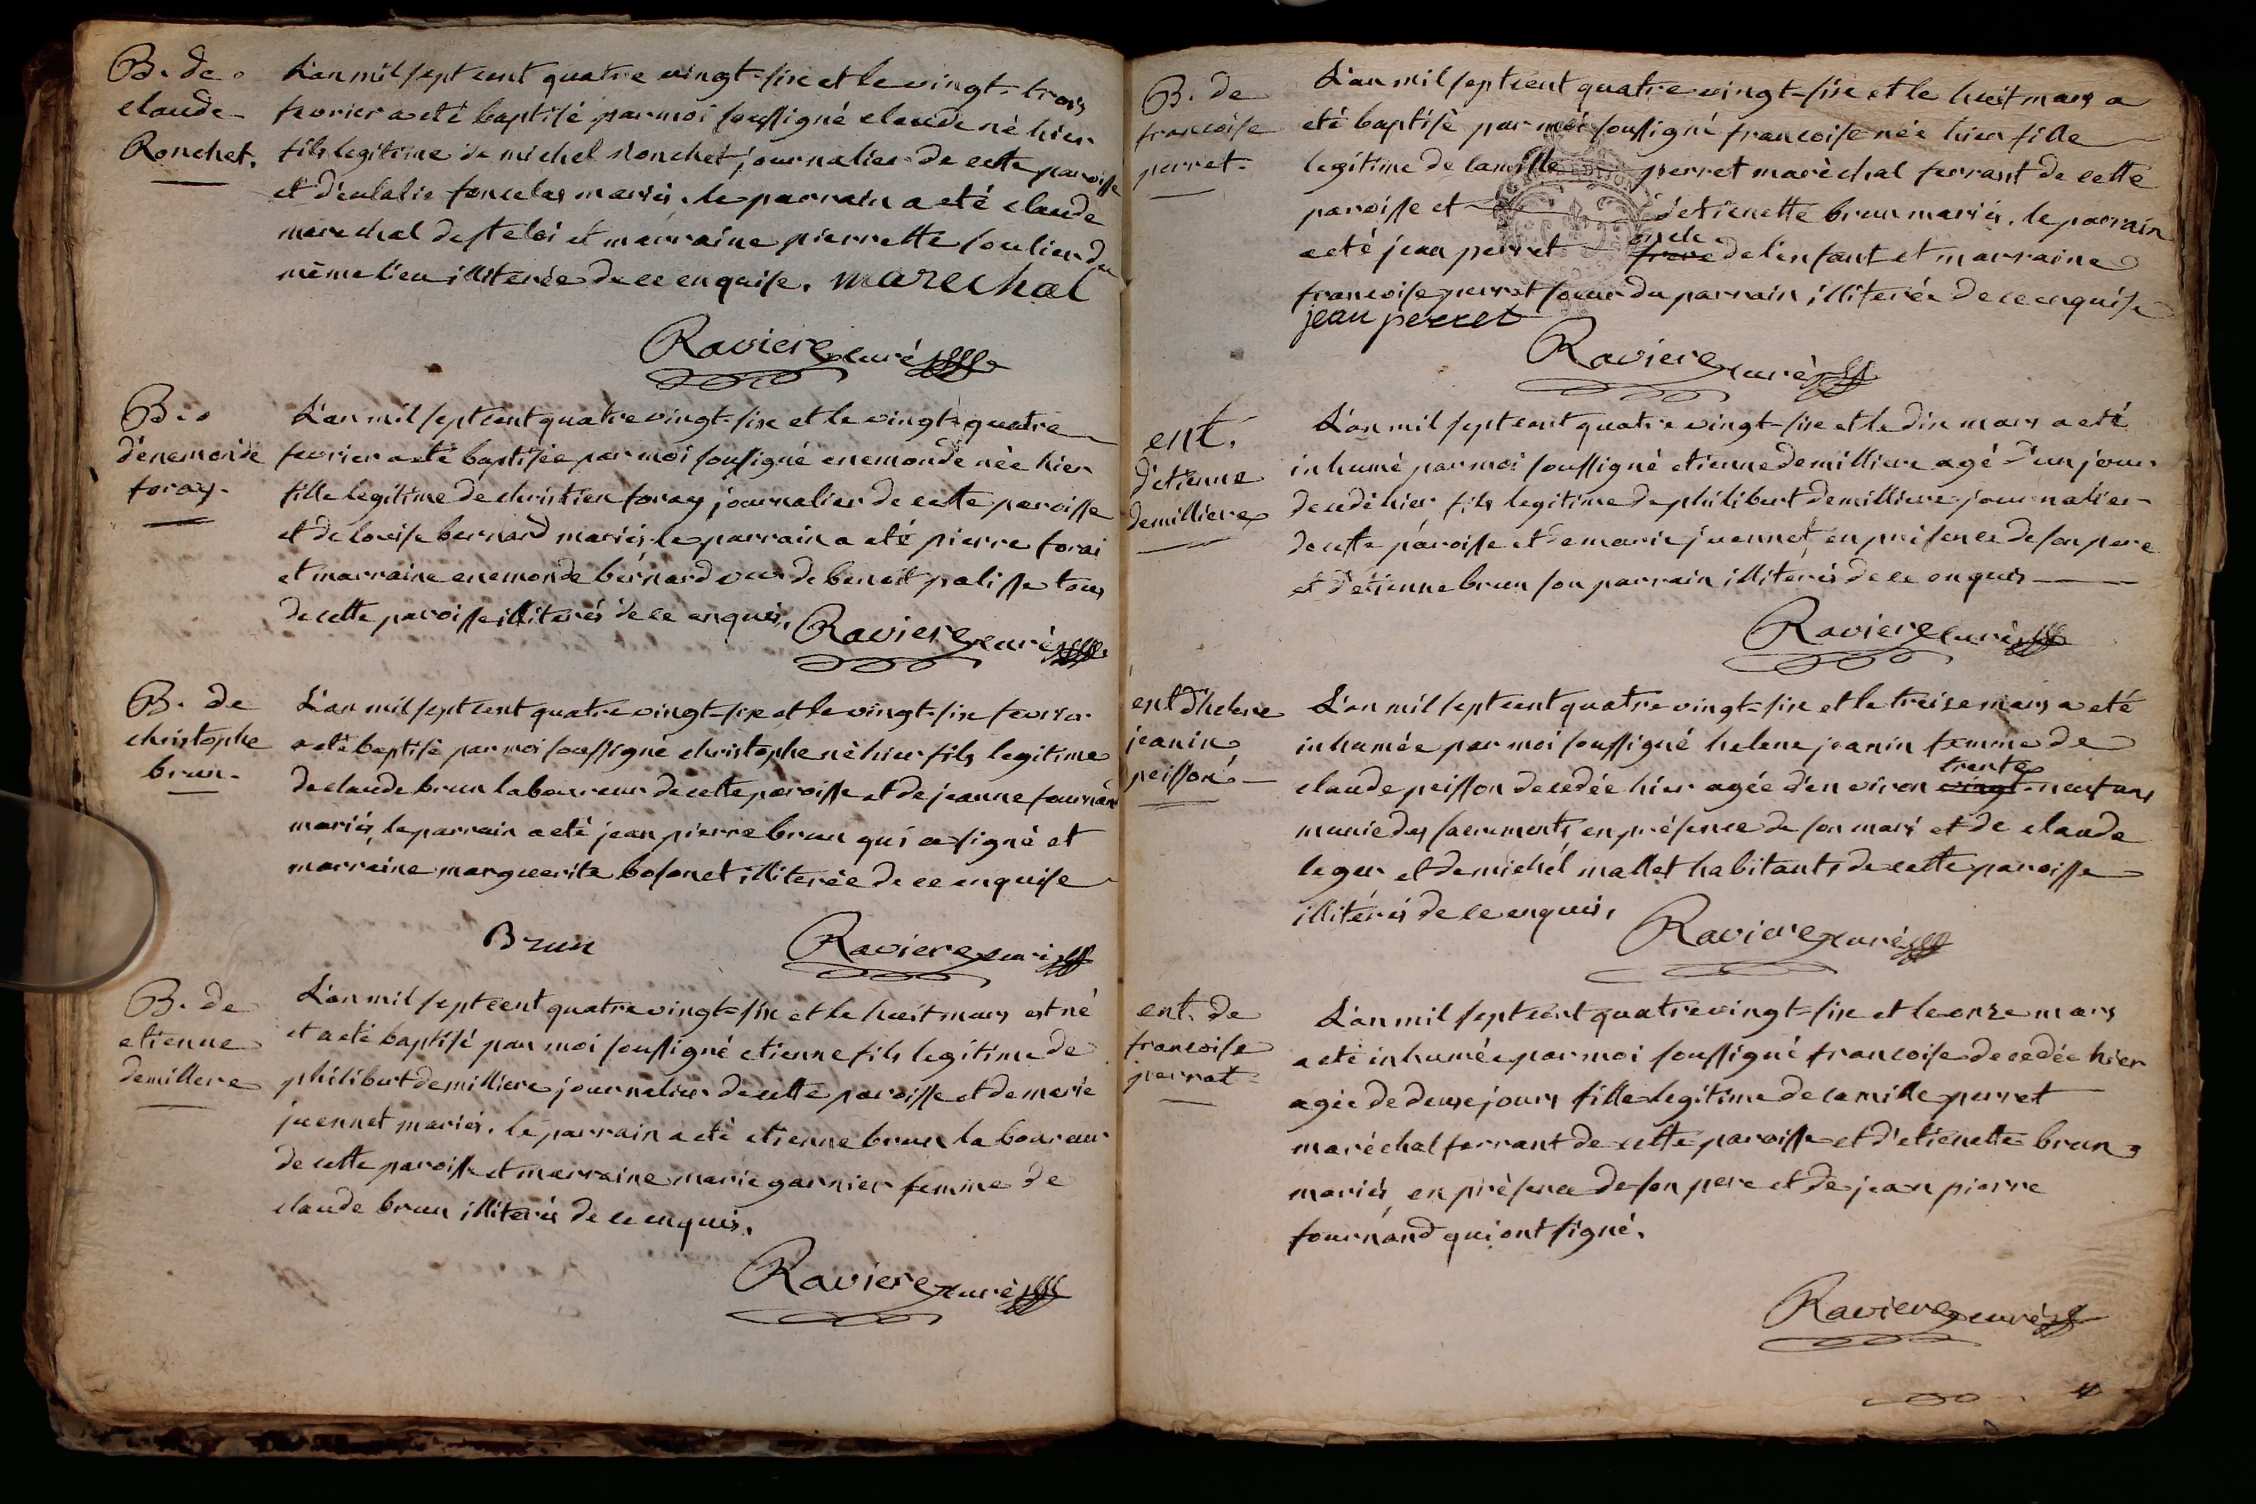 B. de
claude
Ronchet.
L'an mil sept cent quatre vingt-six et le vingt-trois
fevrier a eté baptisé par moi soussigné claude né hier
fils legitime de michel ronchet journalier de cette paroisse
et d'eulalie mariés. le parrain a eté claude
marechal de st eloi et marraine pierrette soulier du
même lieu illiterée de ce enquise. marechal
Raviere curé
B.
d'enemonde
foray.
L'an mil sept cent quatre vingt-six et le vingt-quatre
fevrier a eté baptisée par moi soussigné enemonde née hier
fille legitime de christien foray journalier de cette paroisse
et de loüise bernard mariés. le parrain a eté pierre forai
et marraine enemonde bernard de benoit palisse tous
de cette paroisse illiterés de ce enquis. Raviere curé
B. de
christophe
brun.
L'an mil sept cent quatre vingt-six et le vingt-six fevrier
a eté baptisé par moi soussigné christophe né hier fils legitime
de claude brun laboureur de cette paroisse et de jeanne fournand
mariés, le parrain a eté jean pierre brun qui a signé et
marraine marguerite bosonet illiterée de ce enquise
Brun Raviere curé
B. de
etienne
demillere
L'an mil sept cent quatre vingt-six et le huit mars est né
et a eté baptisé par moi soussigné etienne fils legitime de
philibert demilliere journalier de cette paroisse et de marie
juennet mariés. le parrain a eté etienne brun laboureur
de cette paroisse et marraine marie garnier femme de
claude brun illiterés de ce enquis.
Raviere curé
B. de
francoise
perret.
L'an mil sept cent quatre vingt-six et le huit mars a
eté baptisé par moi soussigné francoise née hier fille
legitime de camille perret maréchal ferrant de cette
paroisse et d'etienette brun mariés. le parrain
a eté jean perret frere oncle de l'enfant et marraine
francoise perret soeur du parrain illiterée de ce enquise
jean perret
Raviere curé
ent.
d'etienne
demilliere
L'an mil sept cent quatre vingt-six et le dix mars a eté
inhumé par moi soussigné etienne demilliere agé d'un jour
decedé hier fils legitime de philibert demilliere journalier
de cette paroisse et de marie juennet, en presence de son pere
et d'etienne brun son parrain illiterés de ce enquis
Raviere curé
ent d'helene
jeanin
peisson
L'an mil sept cent quatre vingt-six et le treize mars a eté
inhumée par moi soussigné helene jeanin femme de
claude peisson decedée hier agée d'environ vingt trente neuf ans
munie des sacrements, en présence de son mari et de claude
leger et de michel mallet habitants de cette paroisse
illiterés de ce enquis.
Raviere curé
ent. de
francoise
perret
L'an mil sept cent quatre vingt-six et le onze mars
a eté inhumée par moi soussigné francoise decedée hier
agée de deux jours fille legitime de camille perret
maréchal ferrant de cette paroisse et d'etienette brun
mariés, en présence de son pere et de jean pierre
fournand qui ont signé.
Raviere curé